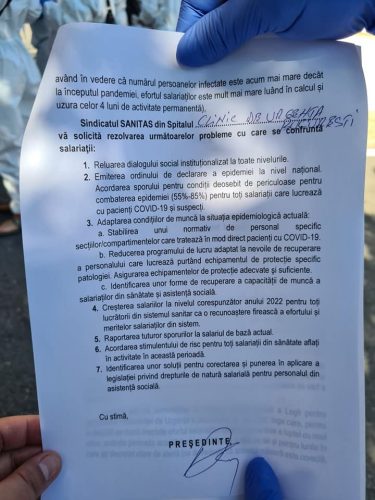 având în vedere că numărul persoanelor infectate este acum mai mare decât
la începutul pandemiei, efortul salariaților este mult mai mare luând în calcul și
uzura celor 4 luni de activitate permanentă),
Sindicatul SANITAS din Spitalul CLINIC DE URGENȚĂ
vă solicită rezolvarea următoarelor probleme cu care se confruntă
salariații:
1. Reluarea dialogului social instituționalizat la toate nivelurile.
2. Emiterea ordinului de declarare a epidemiei la nivel național.
Acordarea sporului pentru condiții deosebit de periculoase pentru
combaterea epidemiei (55%-85%) pentru toți salariații care lucrează
cu pacienți COVID-19 și suspecți.
3. Adaptarea condițiilor de muncă la situația epidemiologică actuală:
a. Stabilirea unui normativ de personal specific
secțiilor/compartimentelor care tratează în mod direct pacienți cu COVID-19.
b. Reducerea programului de lucru adaptat la nevoile de recuperare
a personalului care lucrează purtând echipamentul de protecție specific
patologiei. Asigurarea echipamentelor de protecție adecvate și suficiente.
c. Identificarea unor forme de recuperare a capacității de muncă a
salariaților din sănătate și asistență socială.
4. Creșterea salariilor la nivelul corespunzător anului 2022 pentru toți
lucrătorii din sistemul sanitar ca o recunoaștere firească a efortului și
meritelor salariaților din sistem.
5. Raportarea tuturor sporurilor la salariul de bază actual.
6. Acordarea stimulentului de risc pentru toți salariații din sănătate aflați
în activitate în această perioadă.
7. Identificarea unor soluții pentru corectarea și punerea în aplicare a
legislației privind drepturile de natură salarială pentru personalul din
asistență socială.
Cu stimă,
PREȘEDINTE